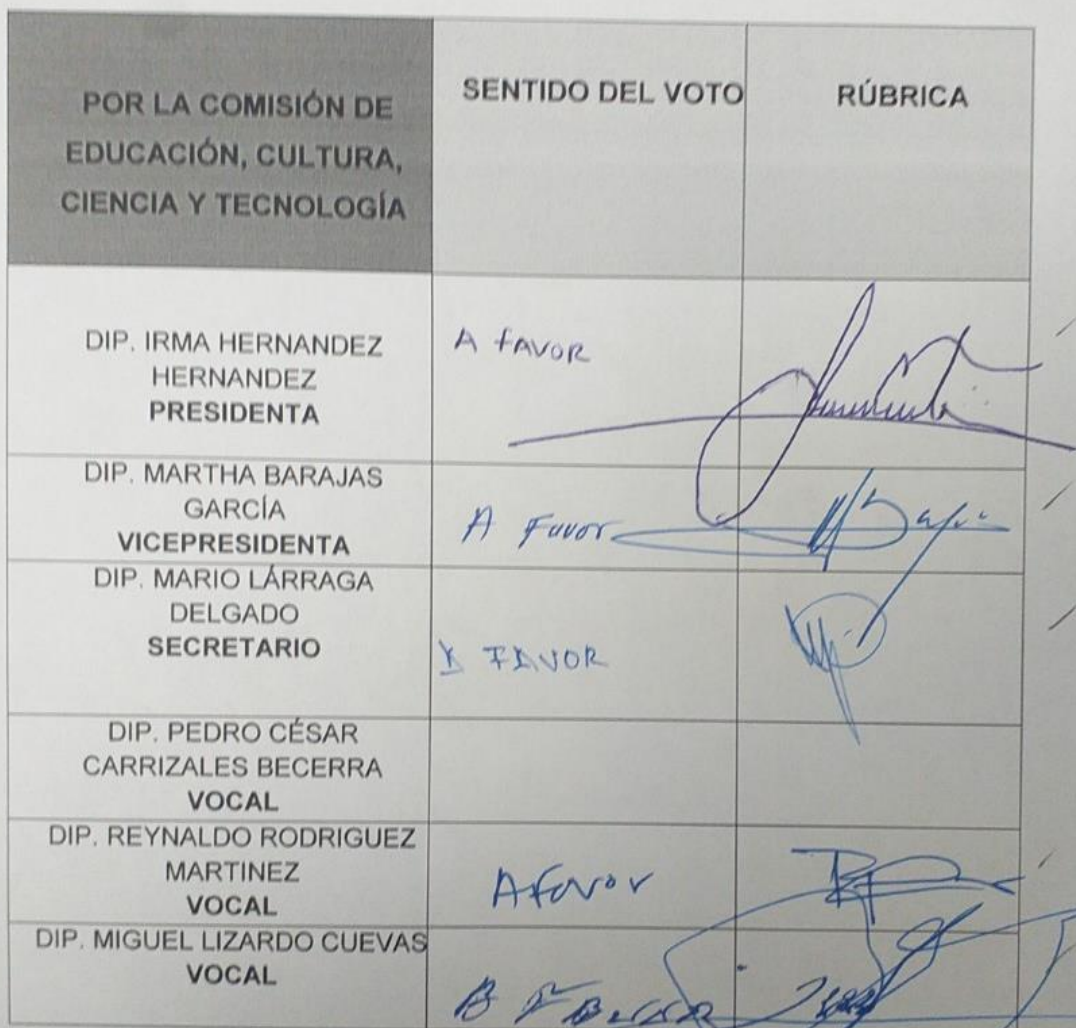 POR LA COMISIÓN DE
EDUCACIÓN, CULTURA,
CIENCIA Y TECNOLOGÍA
SENTIDO DEL VOTO
RÚBRICA
DIP. IRMA HERNANDEZ
HERNANDEZ
PRESIDENTA
A FAVOR
DIP. MARTHA BARAJAS
GARCÍA
VICEPRESIDENTA
A Favor
DIP. MARIO LÁRRAGA
DELGADO
SECRETARIO
A FAVOR
DIP. PEDRO CÉSAR
CARRIZALES BECERRA
VOCAL
DIP. REYNALDO RODRIGUEZ
MARTINEZ
VOCAL
A favor
DIP. MIGUEL LIZARDO CUEVAS
VOCAL